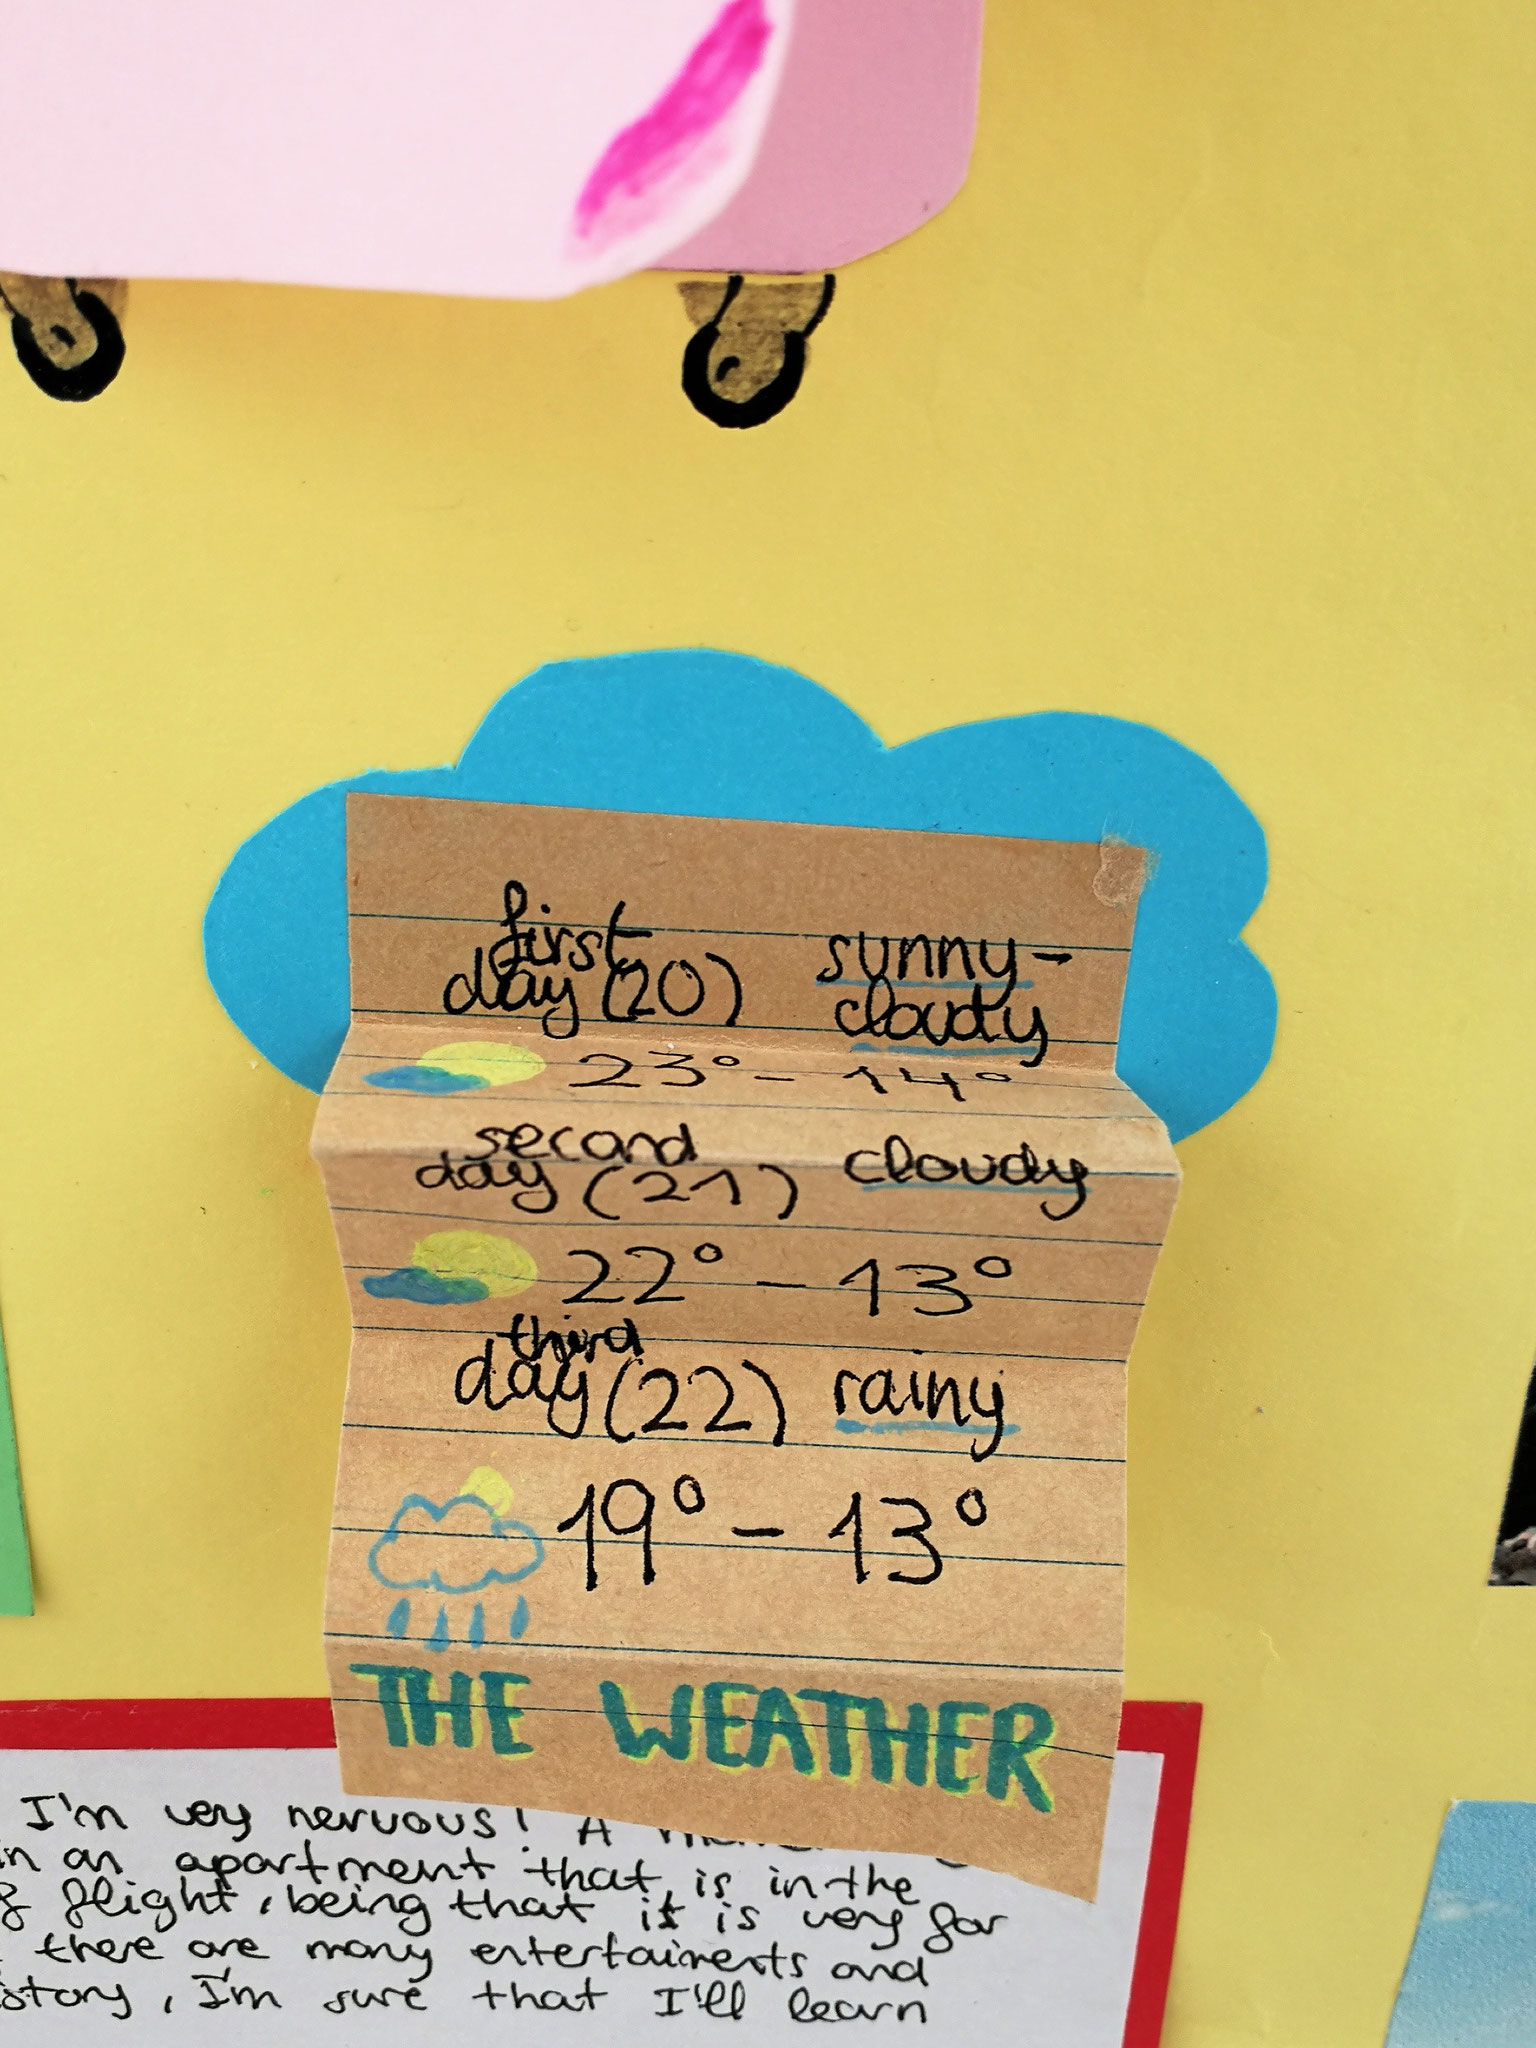 first
day (20) sunny-
cloudy
23° - 14°
second
day (21) cloudy
22° - 13°
third
day (22) rainy
19° - 13°
THE WEATHER
I'm very nervous! A
in an apartment that is in the
flight, being that it is very far
there are many entertaiments and
story, I'm sure that I'll learn